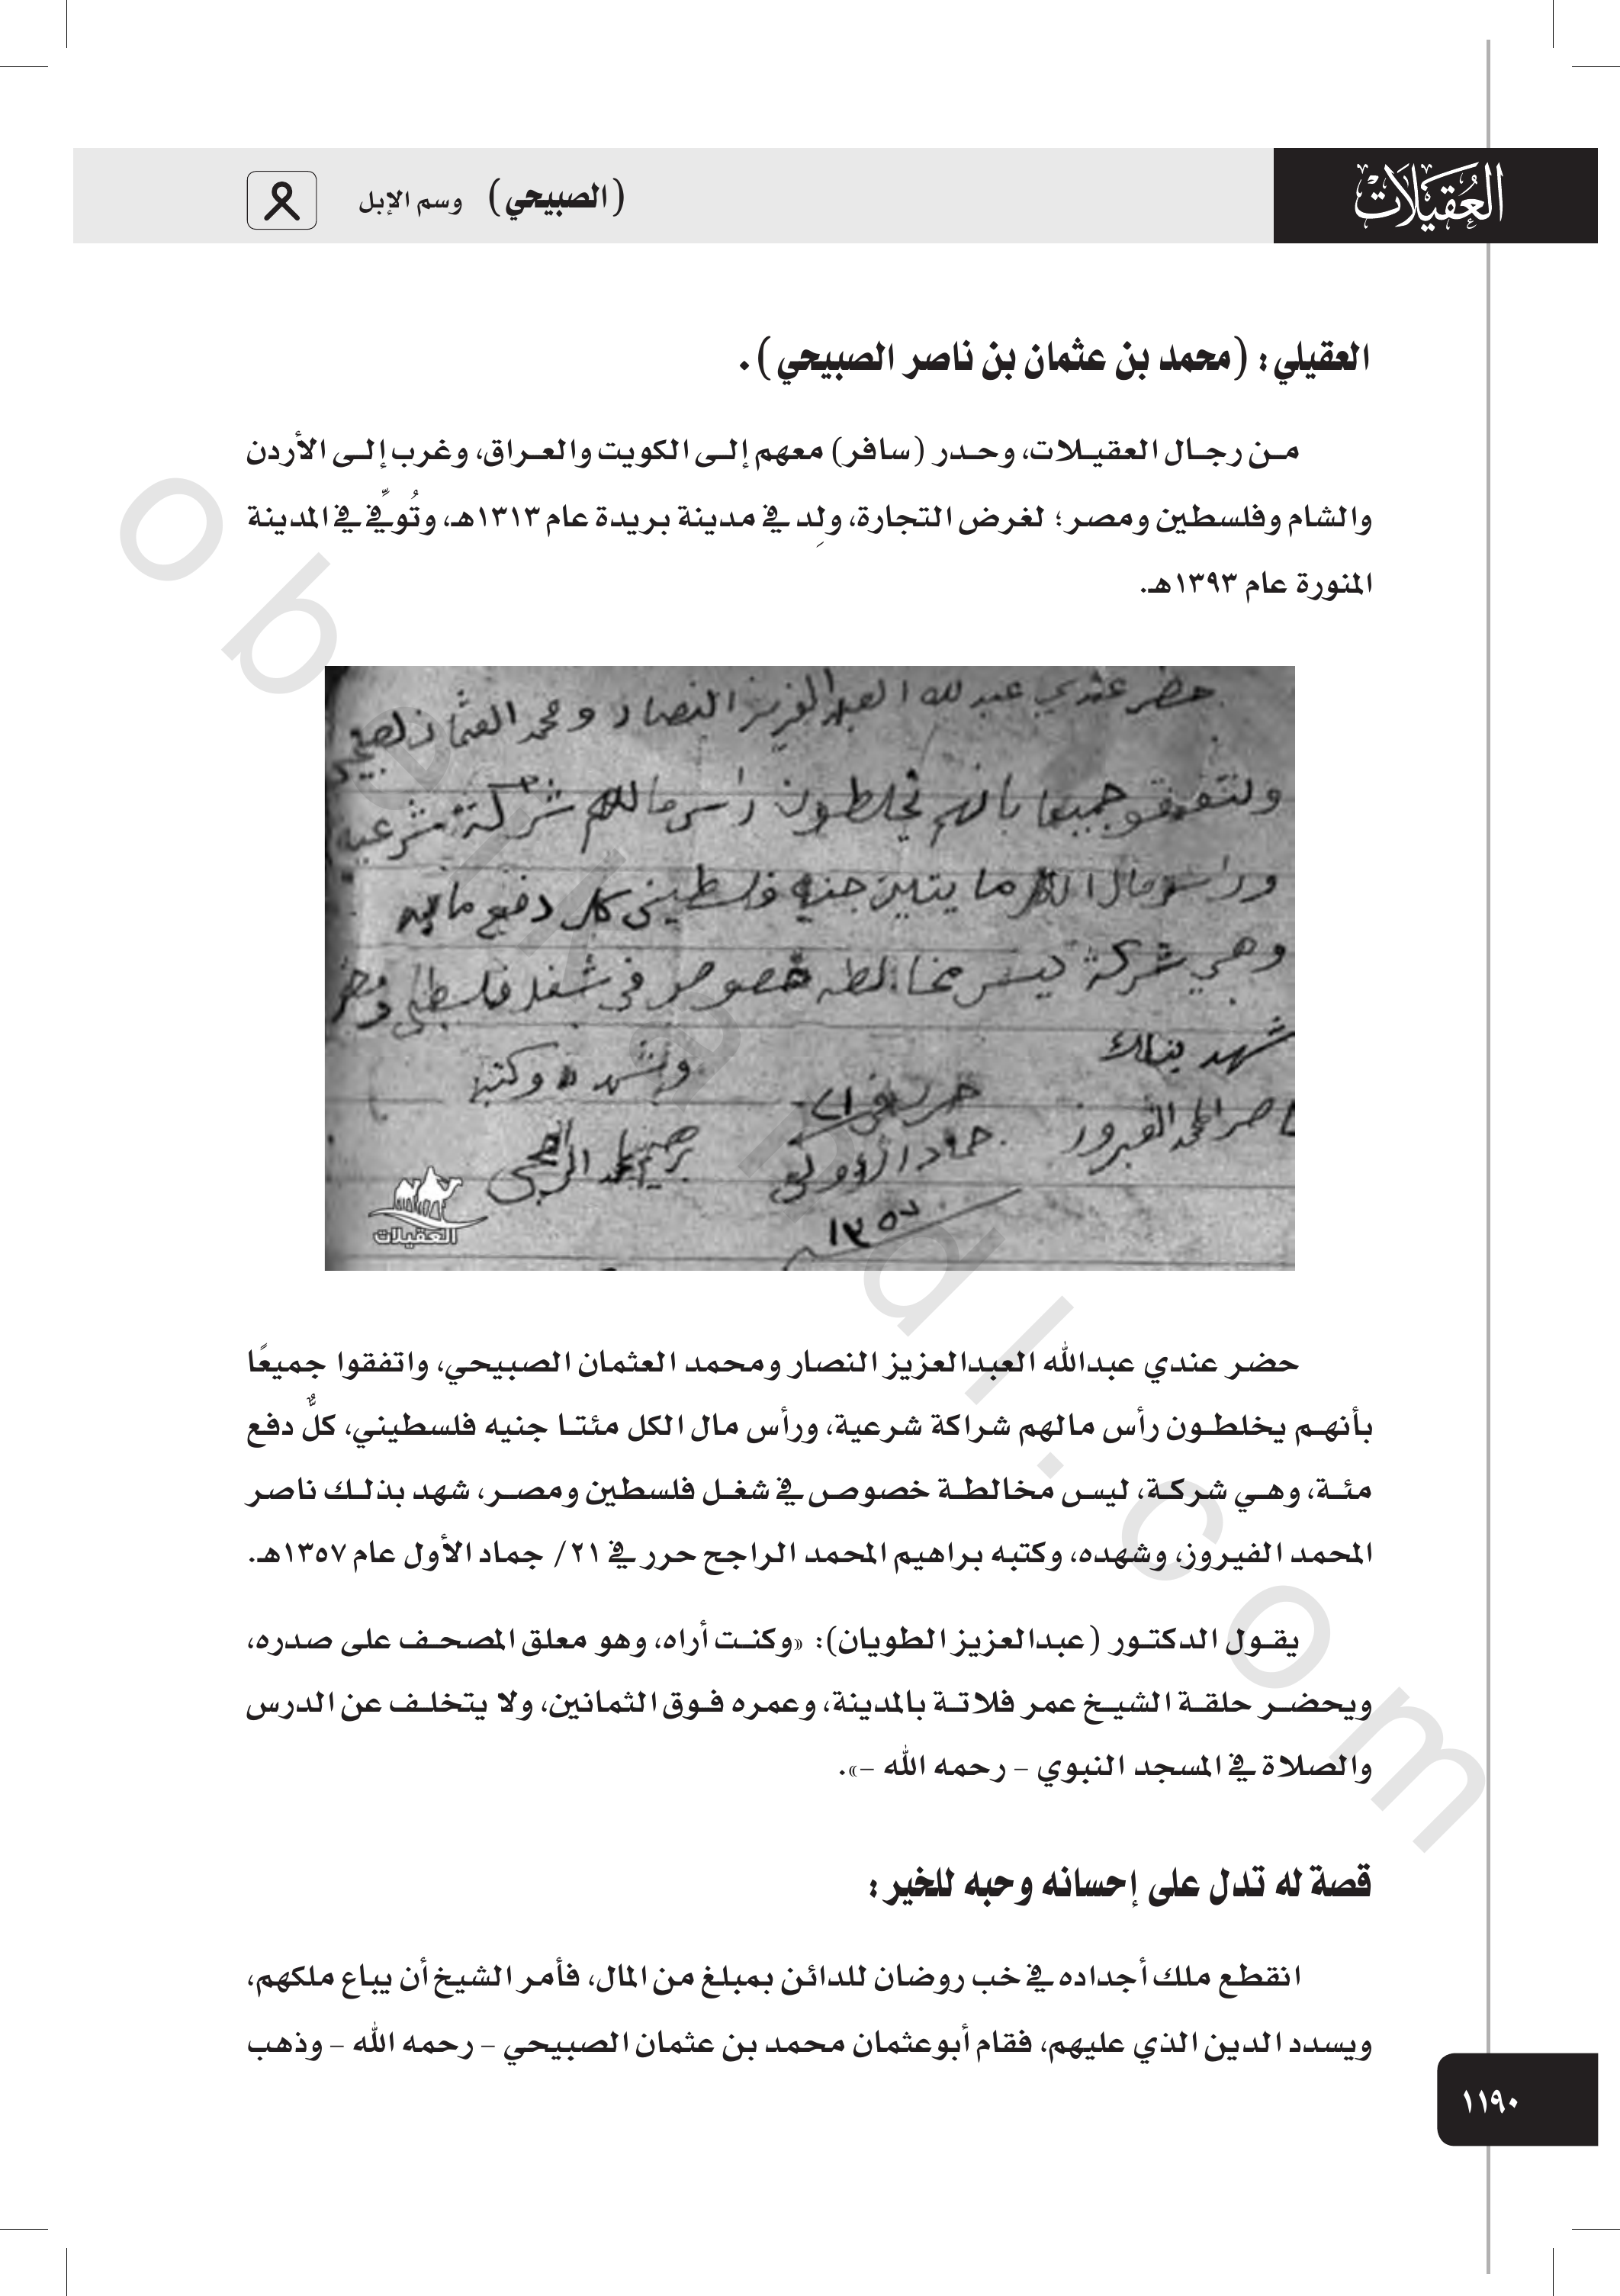 العُقَيلَاتْ
(الصبيحي) وسم الإبل
العقيلي: (محمد بن عثمان بن ناصر الصبيحي).
من رجال العقيلات، وحدر (سافر) معهم إلى الكويت والعراق، وغرب إلى الأردن
والشام وفلسطين ومصر؛ لغرض التجارة، ولِد في مدينة بريدة عام ١٣١٣هـ، وتُوفِّي في المدينة
المنورة عام ١٣٩٣هـ.
حضر عندي عبد لله العبد العزيز النصار ومحمد العثمان لصبيحي
ولتفقو جميعا بانهم يخلطون راس مالهم شركة شرعيه
وراس مال الكل مايتين جنيه فلسطيني كل دفع مايه
وهي شركة ليس مخالطه خصوص في شغل فلسطين ومصر
شهد بذلك
ناصر المحمد الفيروز
حرر في ٢١
جماد الأول
١٣٥٧
وشهده وكتبه
العقيلات
حضر عندي عبدالله العبدالعزيز النصار ومحمد العثمان الصبيحي، واتفقوا جميعًا
بأنهم يخلطون رأس مالهم شراكة شرعية، ورأس مال الكل مئتا جنيه فلسطيني، كلٌّ دفع
مئة، وهي شركة، ليس مخالطة خصوص في شغل فلسطين ومصر، شهد بذلك ناصر
المحمد الفيروز، وشهده، وكتبه براهيم المحمد الراجح حرر في ٢١/ جماد الأول عام ١٣٥٧هـ.
يقول الدكتور (عبدالعزيز الطويان): «وكنت أراه، وهو معلق المصحف على صدره،
ويحضر حلقة الشيخ عمر فلاتة بالمدينة، وعمره فوق الثمانين، ولا يتخلف عن الدرس
والصلاة في المسجد النبوي – رحمه الله –».
قصة له تدل على إحسانه وحبه للخير:
انقطع ملك أجداده في خب روضان للدائن بمبلغ من المال، فأمر الشيخ أن يباع ملكهم،
ويسدد الدين الذي عليهم، فقام أبوعثمان محمد بن عثمان الصبيحي – رحمه الله – وذهب
١١٩٠